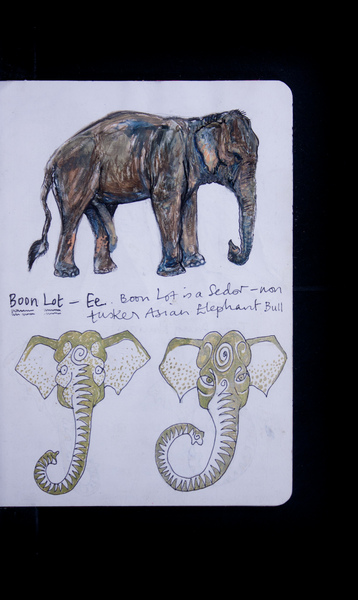 Boon Lot – Ee. Boon Lot is a Sedor – non
tusker Asian Elephant Bull